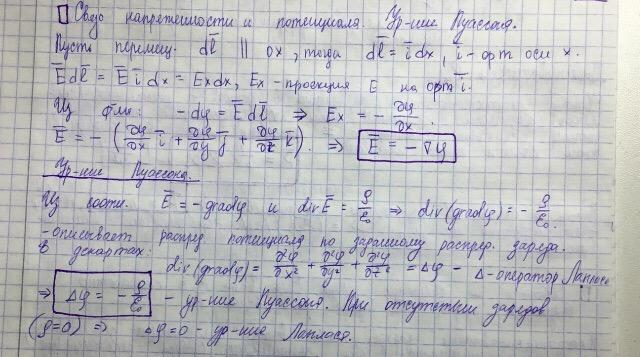 Связь напряженности и потенциала. Ур-ние Пуассона.
Пусть перемещ. dl̅ || ox, тогда dl̅ = i̅ dx, i̅ - орт оси x.
E̅dl̅ = E̅ i̅ dx = Exdx, Ex - проекция E на орт i̅.
Из ф-лы: -dφ = E̅dl̅ ⇒ Ex = - ∂φ/∂x.
E̅ = - (∂φ/∂x i̅ + ∂φ/∂y j̅ + ∂φ/∂z k̅). ⇒ E̅ = -∇φ
Ур-ние Пуассона.
Из соотн. E̅ = -gradφ и divE̅ = ρ/ε₀ ⇒ div(gradφ) = - ρ/ε₀.
- описывает распред потенциала по заданному распред. заряда.
В декартах: div(gradφ) = ∂²φ/∂x² + ∂²φ/∂y² + ∂²φ/∂z² = Δφ - Δ-оператор Лапласа
⇒ Δφ = - ρ/ε₀ - ур-ние Пуассона. При отсутствии зарядов
(ρ=0) ⇒ Δφ=0 - ур-ние Лапласа.